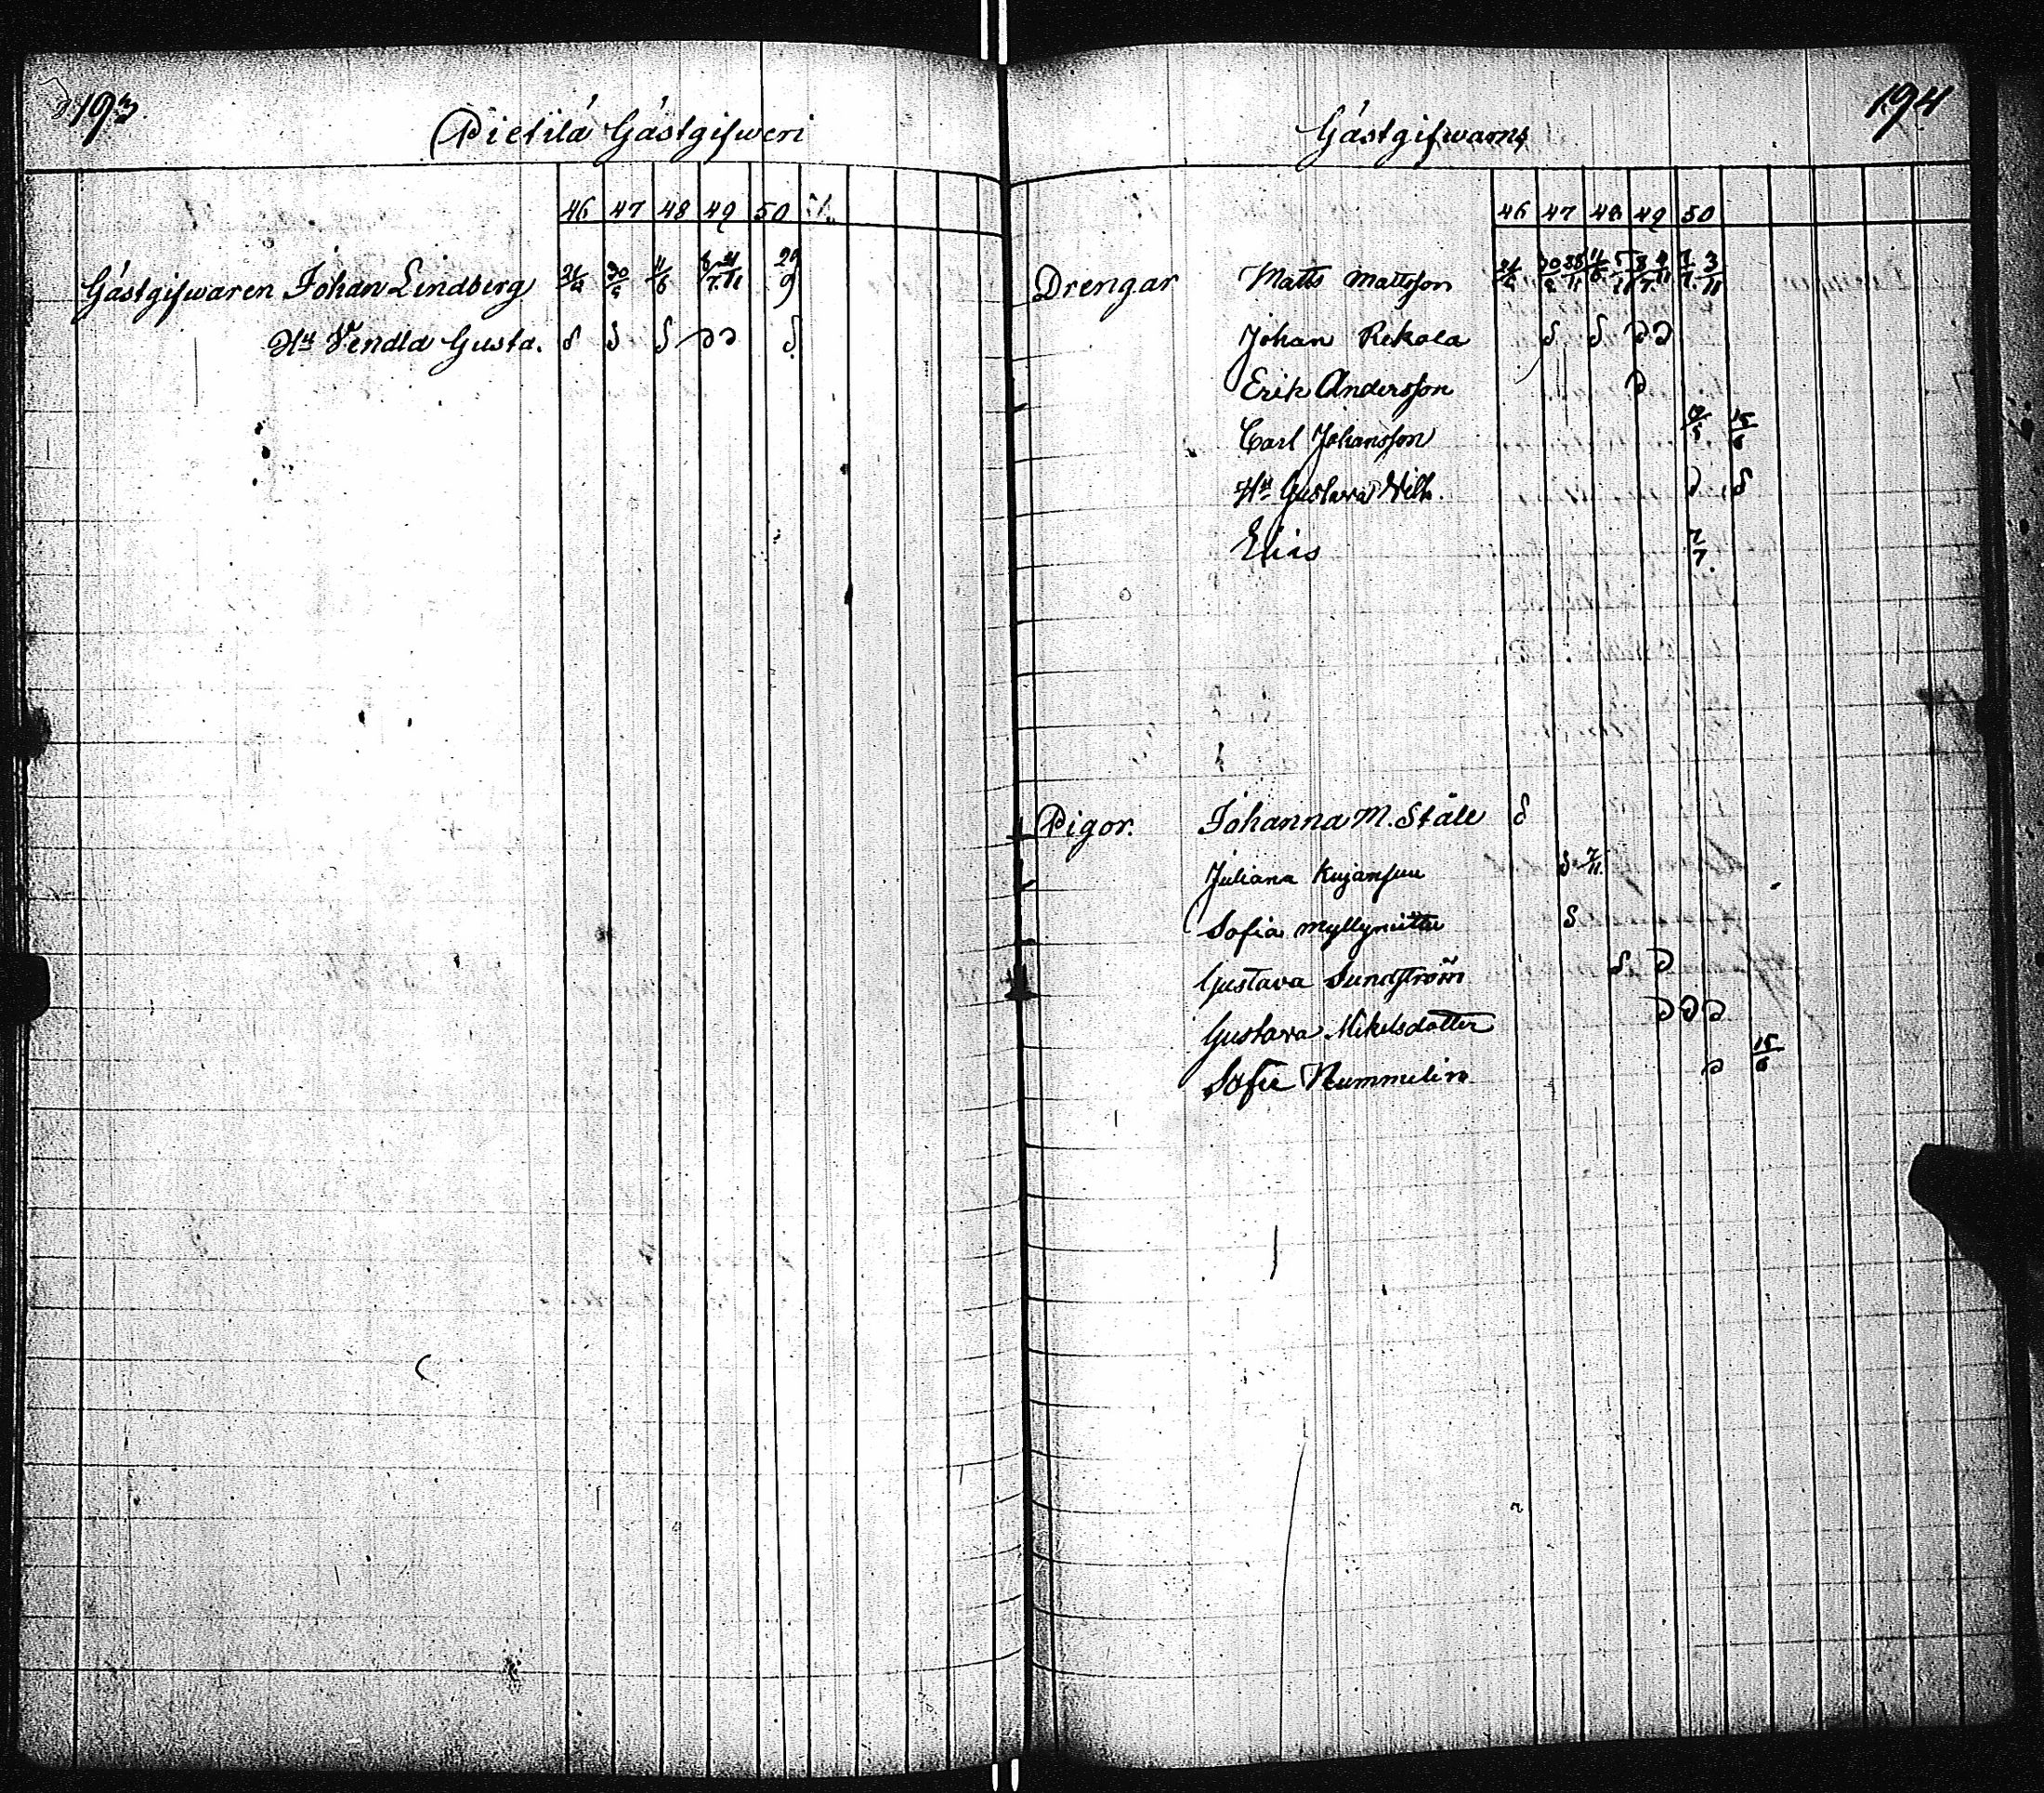 193
Pietilä Gästgifweri
46 47 48 49 50
Gästgifwaren Johan Lindberg 30/5 4/6 29/9
Hu Vendla Gusta. d d d d d d
194
Gästgifwarns
46 47 48 49 50
Drengar Matts Mattsson 3/11
Johan Rekola d d d d
Erik Andersson d
Carl Johansson 15/6
Hu Gustava Vilh. d d
Elias 7/7.
Pigor. Johanna M. Ståle d
Juliana Kujansuu d 7/11.
Sofia Myllyniittu d
Gustava Sundström d d
Gustava Mikelsdotter d d d
Sofia Nummelin d 15/6